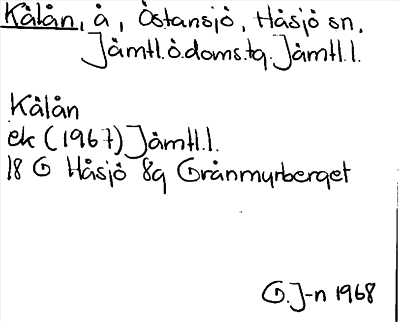 Kålån, å, Östansjö, Håsjö sn,
Jämtl. ö. doms. tg. Jämtl. l.
Kålån
ek (1967) Jämtl. l.
18 G Håsjö 8g Grånmyrberget
G. J-n 1968